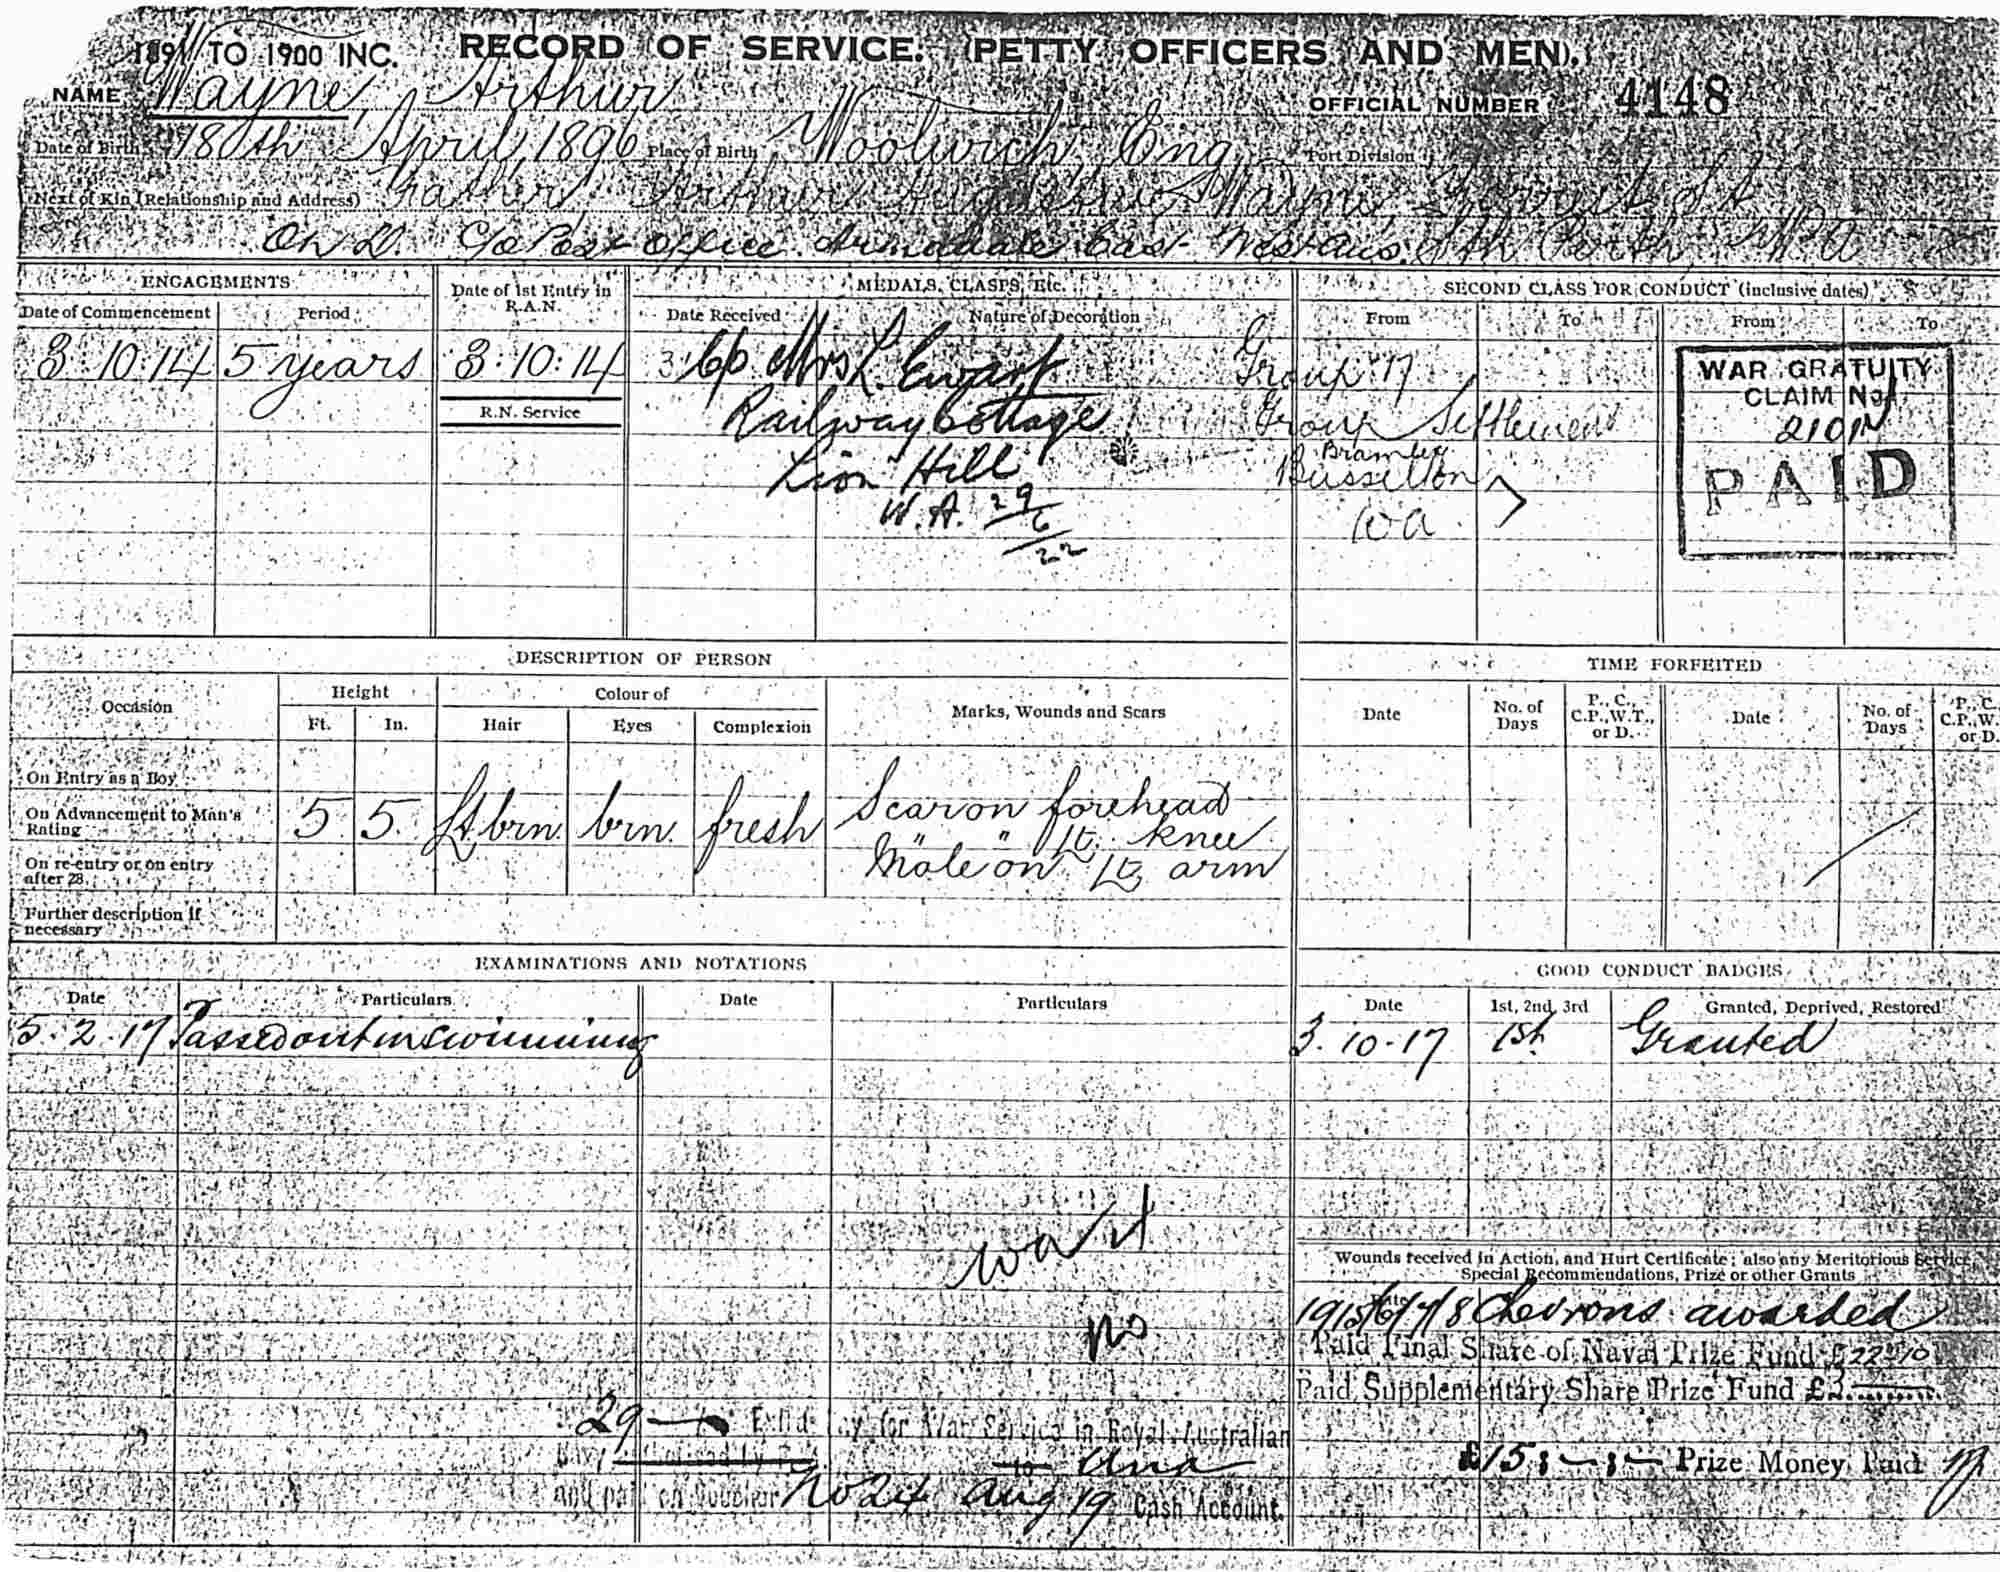 189 TO 1900 INC. RECORD OF SERVICE. (PETTY OFFICERS AND MEN).
NAME Wayne, Arthur OFFICIAL NUMBER 4148
Date of Birth April, 1896 Place of Birth Woolwich, Eng. Port Division
Next of Kin (Relationship and Address) Father Arthur Wayne, Forrest St
C/o Post Office Armadale East West Aus. Sth Perth, W.A
ENGAGEMENTS
Date of Commencement Period
3.10.14 5 years
Date of 1st Entry in R.A.N.
3:10:14
R.N. Service
MEDALS, CLASPS, Etc.
Date Received Nature of Decoration
c/o Mrs L. Ewart
Railway Cottage
Lion Hill
W.A. 29/6/22
SECOND CLASS FOR CONDUCT (inclusive dates)
From To From To
Group 17
Group Settlement
Bramley
Busselton
WA
WAR GRATUITY
CLAIM No
2101N
PAID
DESCRIPTION OF PERSON
Occasion Height Colour of Marks, Wounds and Scars
Ft. In. Hair Eyes Complexion
On Entry as a Boy
On Advancement to Man's Rating
5 5 Lt brn. brn. fresh
Scar on forehead
" " Lt. knee
Mole on Lt. arm
On re-entry or on entry after 28
Further description if necessary
TIME FORFEITED
Date No. of Days P., C., C.P., W.T., or D. Date No. of Days P., C. C.P., W. or D.
EXAMINATIONS AND NOTATIONS
Date Particulars Date Particulars
5.2.17 Passed out in swimming
GOOD CONDUCT BADGES
Date 1st, 2nd, 3rd Granted, Deprived, Restored
3.10.17 1st Granted
no
Wounds received in Action, and Hurt Certificate; also any Meritorious Service
Special Recommendations, Prize or other Grants
1915/6/7/8 Chevrons awarded
Paid Final Share of Naval Prize Fund £22-10
Paid Supplementary Share Prize Fund £3
29 for War Service in Royal Australian
No 24 Aug 19 Cash Account.
£15:-:- Prize Money Paid